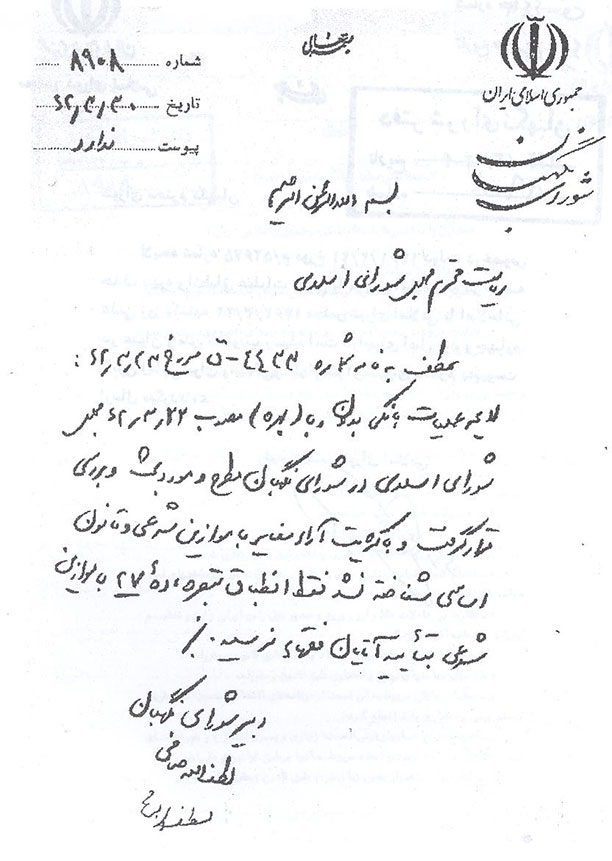 بسمه تعالی
جمهوری اسلامی ایران
شورای نگهبان
شماره ۸۹۰۸
تاریخ ۶۲٫۳٫۳۰
پیوست ندارد
بسم الله الرحمن الرحیم
ریاست محترم مجلس شورای اسلامی
عطف به نامه شماره ۴۴۳۳-ق مورخ ۶۲٫۳٫۲۳ :
لایحه عملیات بانکی بدون ربا (بهره) مصوب ۶۲٫۳٫۲۲ مجلس
شورای اسلامی در شورای نگهبان مطرح و مورد بحث و بررسی
قرار گرفت و با اکثریت آراء مغایر با موازین شرعی و قانون
اساسی شناخته نشد فقط انطباق تبصره ماده ۲۷ با موازین
شرعی بتأیید آقایان فقهاء نرسید./
دبیر شورای نگهبان
لطف الله صافی